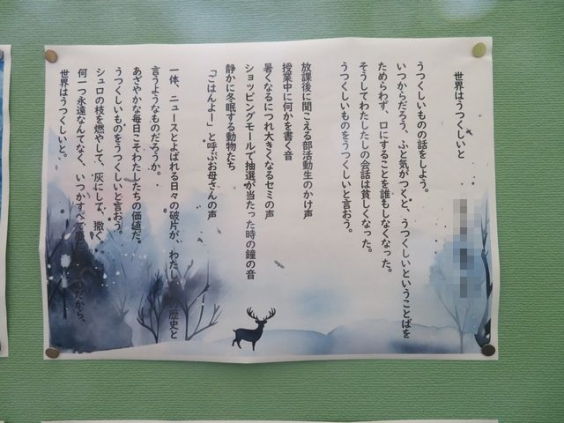 世界はうつくしいと
うつくしいものの話をしよう。
いつからだろう、ふと気がつくと、うつくしいということばを
ためらわず、口にすることを誰もしなくなった。
そうしてわたしたしの会話は貧しくなった。
うつくしいものをうつくしいと言おう。
放課後に聞こえる部活動生のかけ声
授業中に何かを書く音
暑くなるにつれ大きくなるセミの声
ショッピングモールで抽選が当たった時の鐘の音
静かに冬眠する動物たち
「ごはんよー」と呼ぶお母さんの声
一体、ニュースとよばれる日々の破片が、わたし 歴史と
言うようなものだろうか。
あざやかな毎日こそわたしたちの価値だ。
うつくしいものをうつくしいと言おう。
シュロの枝を燃やして、灰にして、撒く。
何一つ永遠なんてなく、いつかすべて だから、
世界はうつくしいと。